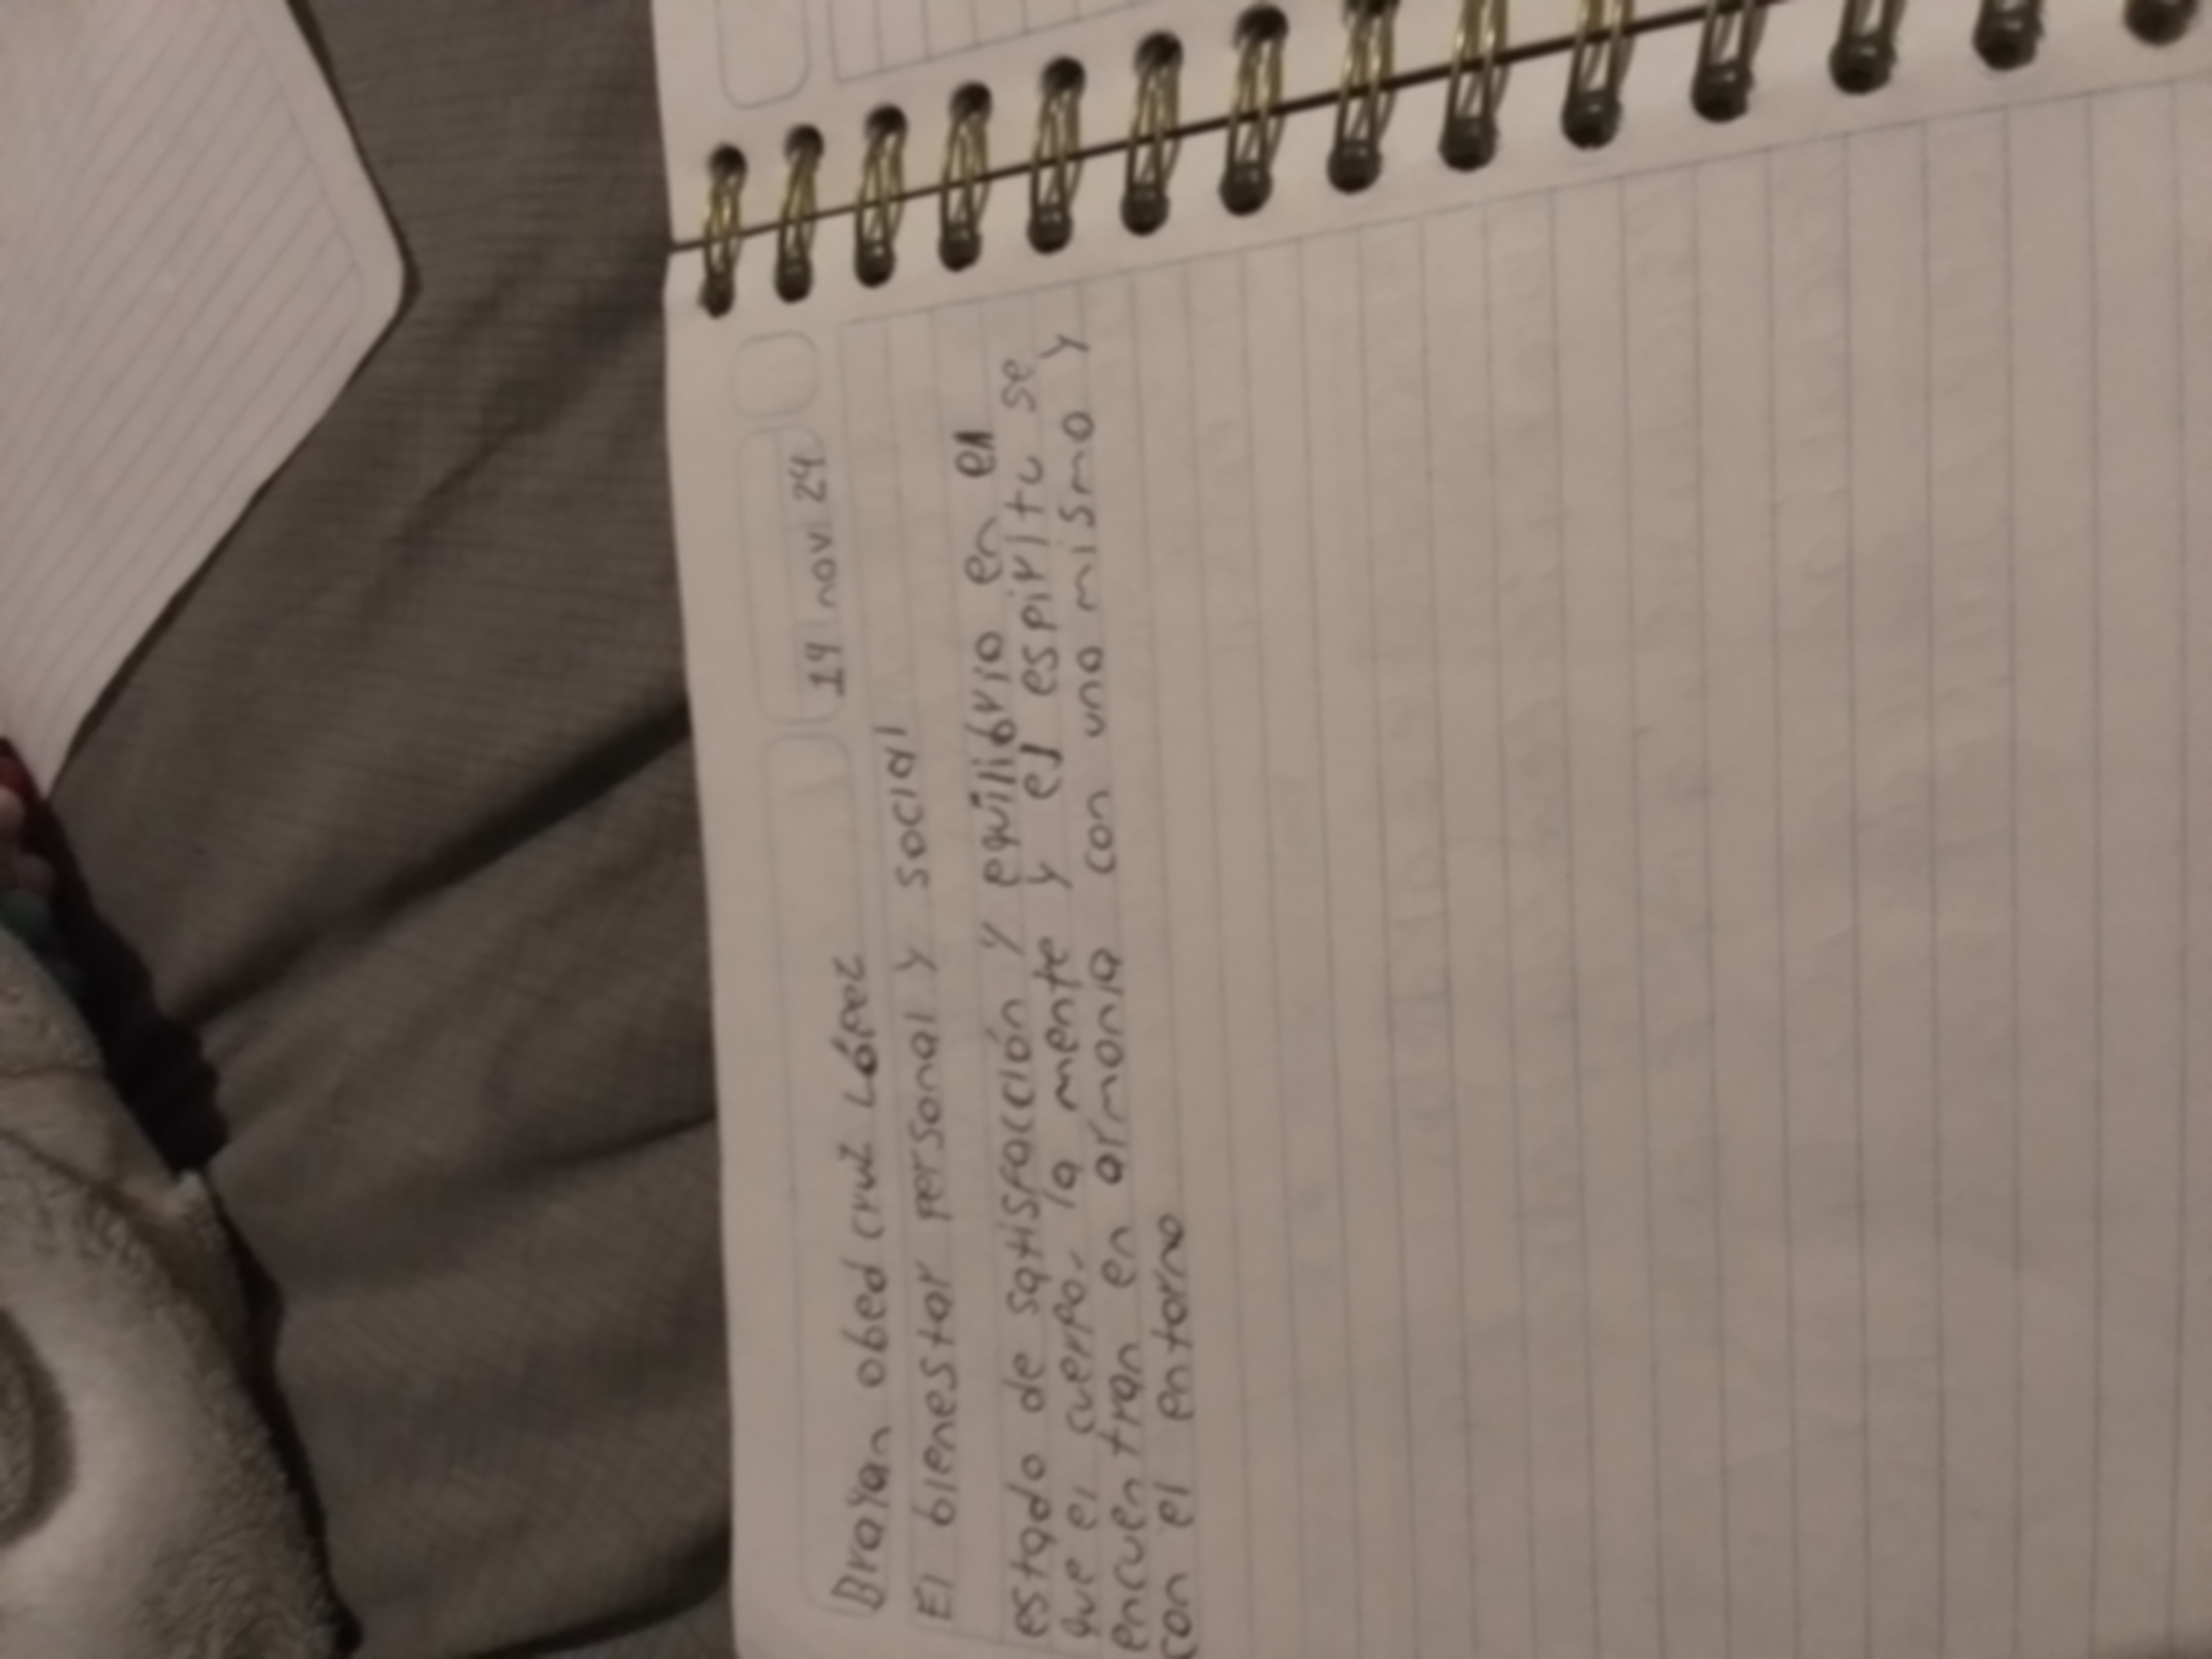 14 nov. 24
Brayan obed cruz López
El bienestar personal y social
estado de satisfacción y equilibrio en en
que el cuerpo, la mente y el espiritu se
encuentran en armonia con uno mismo y
con el entorno